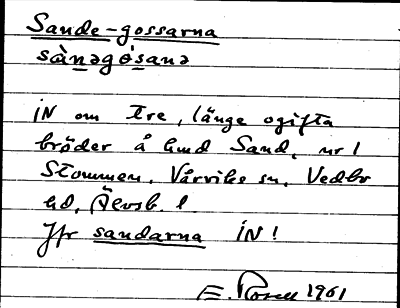 Sande-gossarna
sànəgósanə
IN om tre, länge ogifta
bröder å hmd Sand, nr 1
Stommen, Vårviks sn, Vedbo
hd, Älvsb. l.
Jfr sandarna IN!
E. Rosell 1961